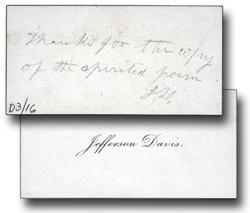 Thanks for the copy
of the spirited poem.
D3/16
Jefferson Davis.